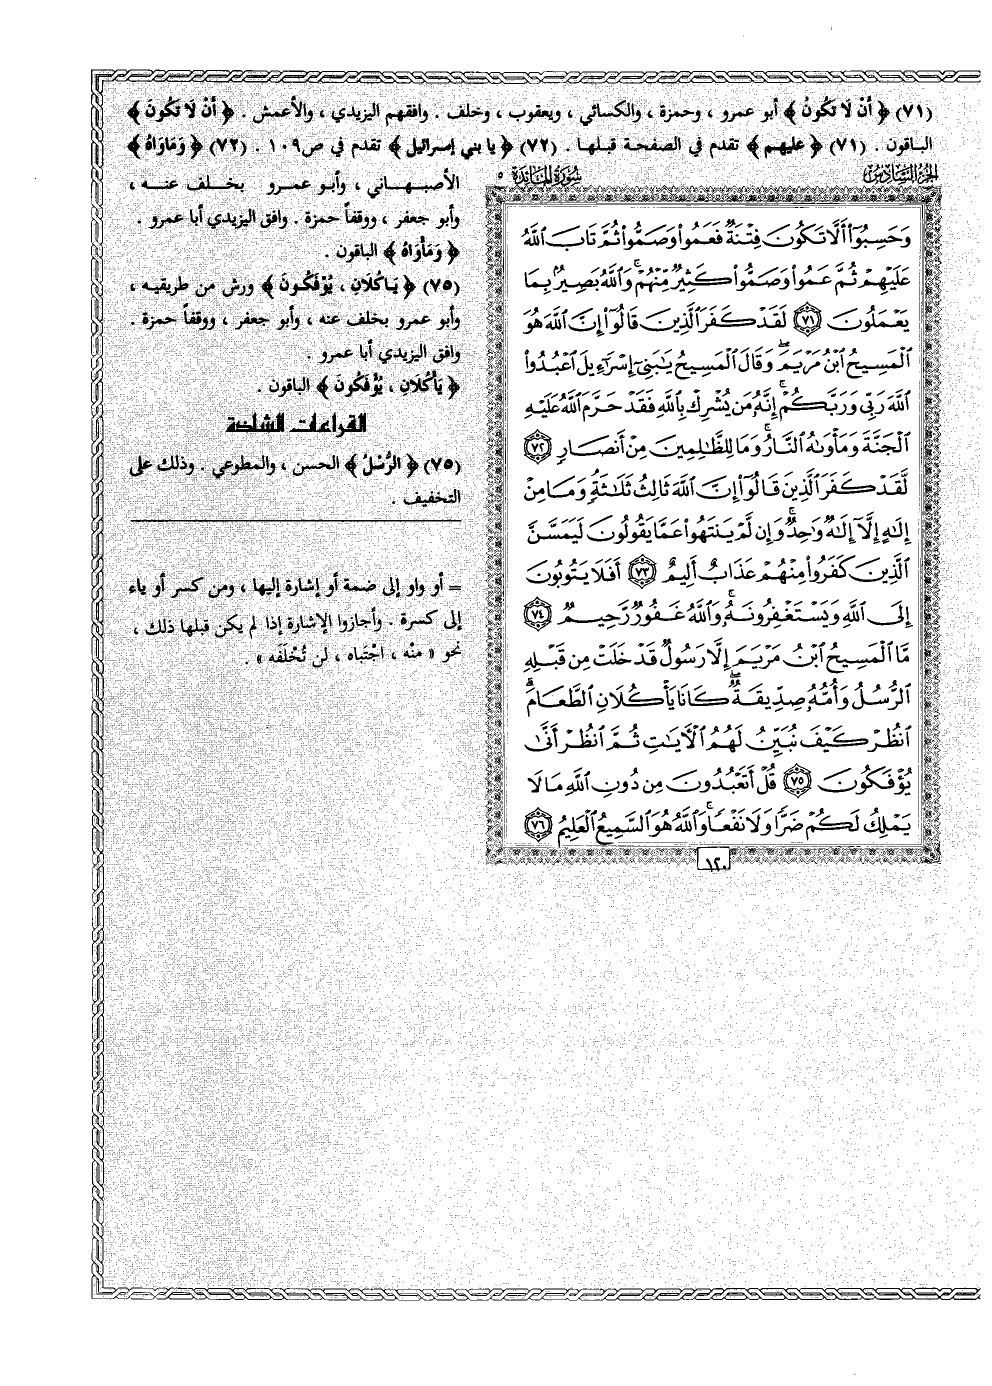 (٧١) ﴿ أَنْ لَا تَكُونُ ﴾ أبو عمرو ، وحمزة ، والكسائي ، ويعقوب ، وخلف . وافقهم اليزيدي ، والأعمش . ﴿ أَنْ لَا تَكُونَ ﴾
الباقون . (٧١) ﴿ عليهم ﴾ تقدم في الصفحة قبلها . (٧٢) ﴿ يا بني إسرائيل ﴾ تقدم في ص١٠٩ . (٧٢) ﴿ وَمَاوَاهُ ﴾
الأصبهاني ، وأبو عمرو بخلف عنه ،
وأبو جعفر ، ووقفاً حمزة . وافق اليزيدي أبا عمرو .
﴿ وَمَأْوَاهُ ﴾ الباقون .
(٧٥) ﴿ يَاكُلَانِ ، يُوْفَكُونَ ﴾ ورش من طريقيه ،
وأبو عمرو بخلف عنه ، وأبو جعفر ، ووقفاً حمزة .
وافق اليزيدي أبا عمرو .
﴿ يَأْكُلَانِ ، يُؤْفَكُونَ ﴾ الباقون .
القراءات الشاذة
(٧٥) ﴿ الرُّسْلُ ﴾ الحسن ، والمطوعي . وذلك على
التخفيف .
= أو واو إلى ضمة أو إشارة إليها ، ومن كسر أو ياء
إلى كسرة . وأجازوا الإشارة إذا لم يكن قبلها ذلك ،
نحو « منْه ، اجْتَباه ، لن تُخْلَفَه » .
الجزء السادس
سورة المائدة ٥
وَحَسِبُوٓا۟ أَلَّا تَكُونَ فِتْنَةٌ فَعَمُوا۟ وَصَمُّوا۟ ثُمَّ تَابَ ٱللَّهُ
عَلَيْهِمْ ثُمَّ عَمُوا۟ وَصَمُّوا۟ كَثِيرٌ مِّنْهُمْ ۚ وَٱللَّهُ بَصِيرٌۢ بِمَا
يَعْمَلُونَ ٧١ لَقَدْ كَفَرَ ٱلَّذِينَ قَالُوٓا۟ إِنَّ ٱللَّهَ هُوَ
ٱلْمَسِيحُ ٱبْنُ مَرْيَمَ ۖ وَقَالَ ٱلْمَسِيحُ يَٰبَنِىٓ إِسْرَٰٓءِيلَ ٱعْبُدُوا۟
ٱللَّهَ رَبِّى وَرَبَّكُمْ ۖ إِنَّهُۥ مَن يُشْرِكْ بِٱللَّهِ فَقَدْ حَرَّمَ ٱللَّهُ عَلَيْهِ
ٱلْجَنَّةَ وَمَأْوَىٰهُ ٱلنَّارُ ۖ وَمَا لِلظَّٰلِمِينَ مِنْ أَنصَارٍ ٧٢
لَّقَدْ كَفَرَ ٱلَّذِينَ قَالُوٓا۟ إِنَّ ٱللَّهَ ثَالِثُ ثَلَٰثَةٍ ۘ وَمَا مِنْ
إِلَٰهٍ إِلَّآ إِلَٰهٌ وَٰحِدٌ ۚ وَإِن لَّمْ يَنتَهُوا۟ عَمَّا يَقُولُونَ لَيَمَسَّنَّ
ٱلَّذِينَ كَفَرُوا۟ مِنْهُمْ عَذَابٌ أَلِيمٌ ٧٣ أَفَلَا يَتُوبُونَ
إِلَى ٱللَّهِ وَيَسْتَغْفِرُونَهُۥ ۚ وَٱللَّهُ غَفُورٌ رَّحِيمٌ ٧٤
مَّا ٱلْمَسِيحُ ٱبْنُ مَرْيَمَ إِلَّا رَسُولٌ قَدْ خَلَتْ مِن قَبْلِهِ
ٱلرُّسُلُ وَأُمُّهُۥ صِدِّيقَةٌ ۖ كَانَا يَأْكُلَانِ ٱلطَّعَامَ ۗ
ٱنظُرْ كَيْفَ نُبَيِّنُ لَهُمُ ٱلْءَايَٰتِ ثُمَّ ٱنظُرْ أَنَّىٰ
يُؤْفَكُونَ ٧٥ قُلْ أَتَعْبُدُونَ مِن دُونِ ٱللَّهِ مَا لَا
يَمْلِكُ لَكُمْ ضَرًّا وَلَا نَفْعًا ۚ وَٱللَّهُ هُوَ ٱلسَّمِيعُ ٱلْعَلِيمُ ٧٦
١٢٠